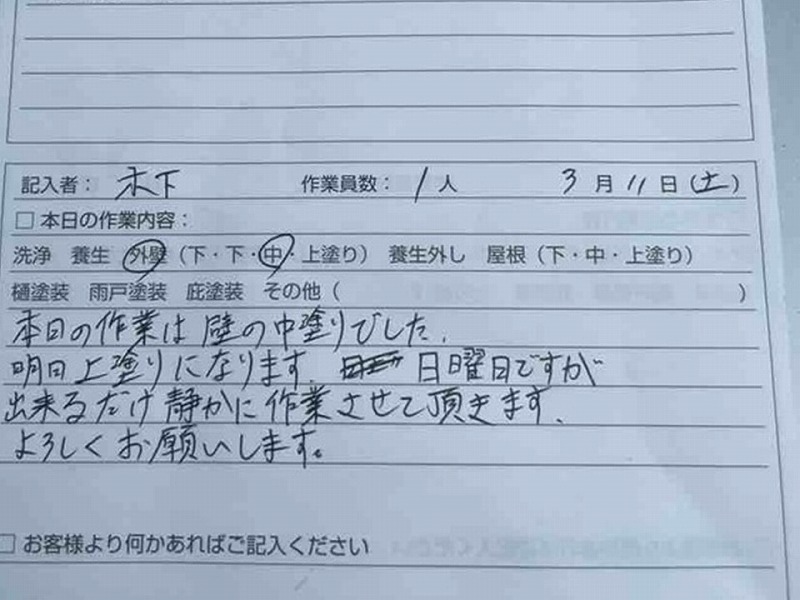 記入者： 木下 作業員数： 1 人 3 月 11 日 (土)
□ 本日の作業内容：
洗浄 養生 外壁（下・下・中・上塗り） 養生外し 屋根（下・中・上塗り）
樋塗装 雨戸塗装 庇塗装 その他（ ）
本日の作業は壁の中塗りでした.
明日上塗りになります. 日曜日ですが
出来るだけ静かに作業させて頂きます.
よろしくお願いします。
□ お客様より何かあればご記入ください